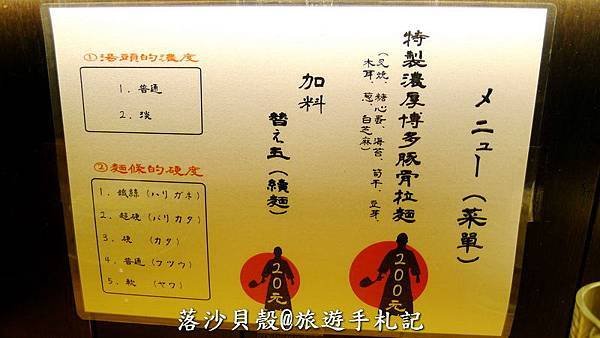 メニュー（菜單）
特製濃厚博多豚骨拉麵
（叉燒、糖心蛋、海苔、筍干、豆芽、
木耳、蔥、白芝麻）
200元
加料
替え玉（續麵）
20元
①湯頭的濃度
1. 普通
2. 淡
②麵條的硬度
1. 鐵絲（ハリガネ）
2. 超硬（バリカタ）
3. 硬（カタ）
4. 普通（フツウ）
5. 軟（ヤワ）
落沙貝殼@旅遊手札記